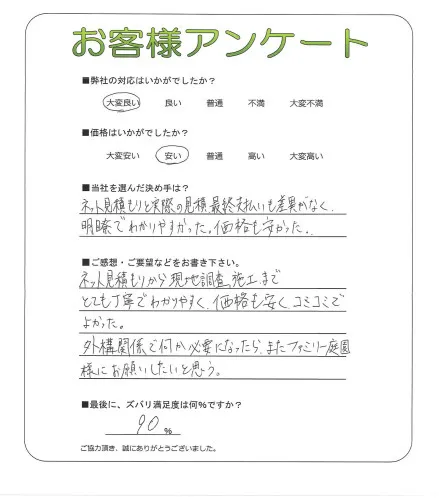 お客様アンケート
■弊社の対応はいかがでしたか？
大変良い 良い 普通 不満 大変不満
■価格はいかがでしたか？
大変安い 安い 普通 高い 大変高い
■当社を選んだ決め手は？
ネット見積もりと実際の見積、最終支払いも差異がなく、
明瞭でわかりやすかった。価格も安かった。
■ご感想・ご要望などをお書き下さい。
ネット見積もりから現地調査、施工まで
とても丁寧でわかりやすく、価格も安く、コミコミで
よかった。
外構関係で何か必要になったら、またファミリー庭園
様にお願いしたいと思う。
■最後に、ズバリ満足度は何%ですか？
90 %
ご協力頂き、誠にありがとうございました。